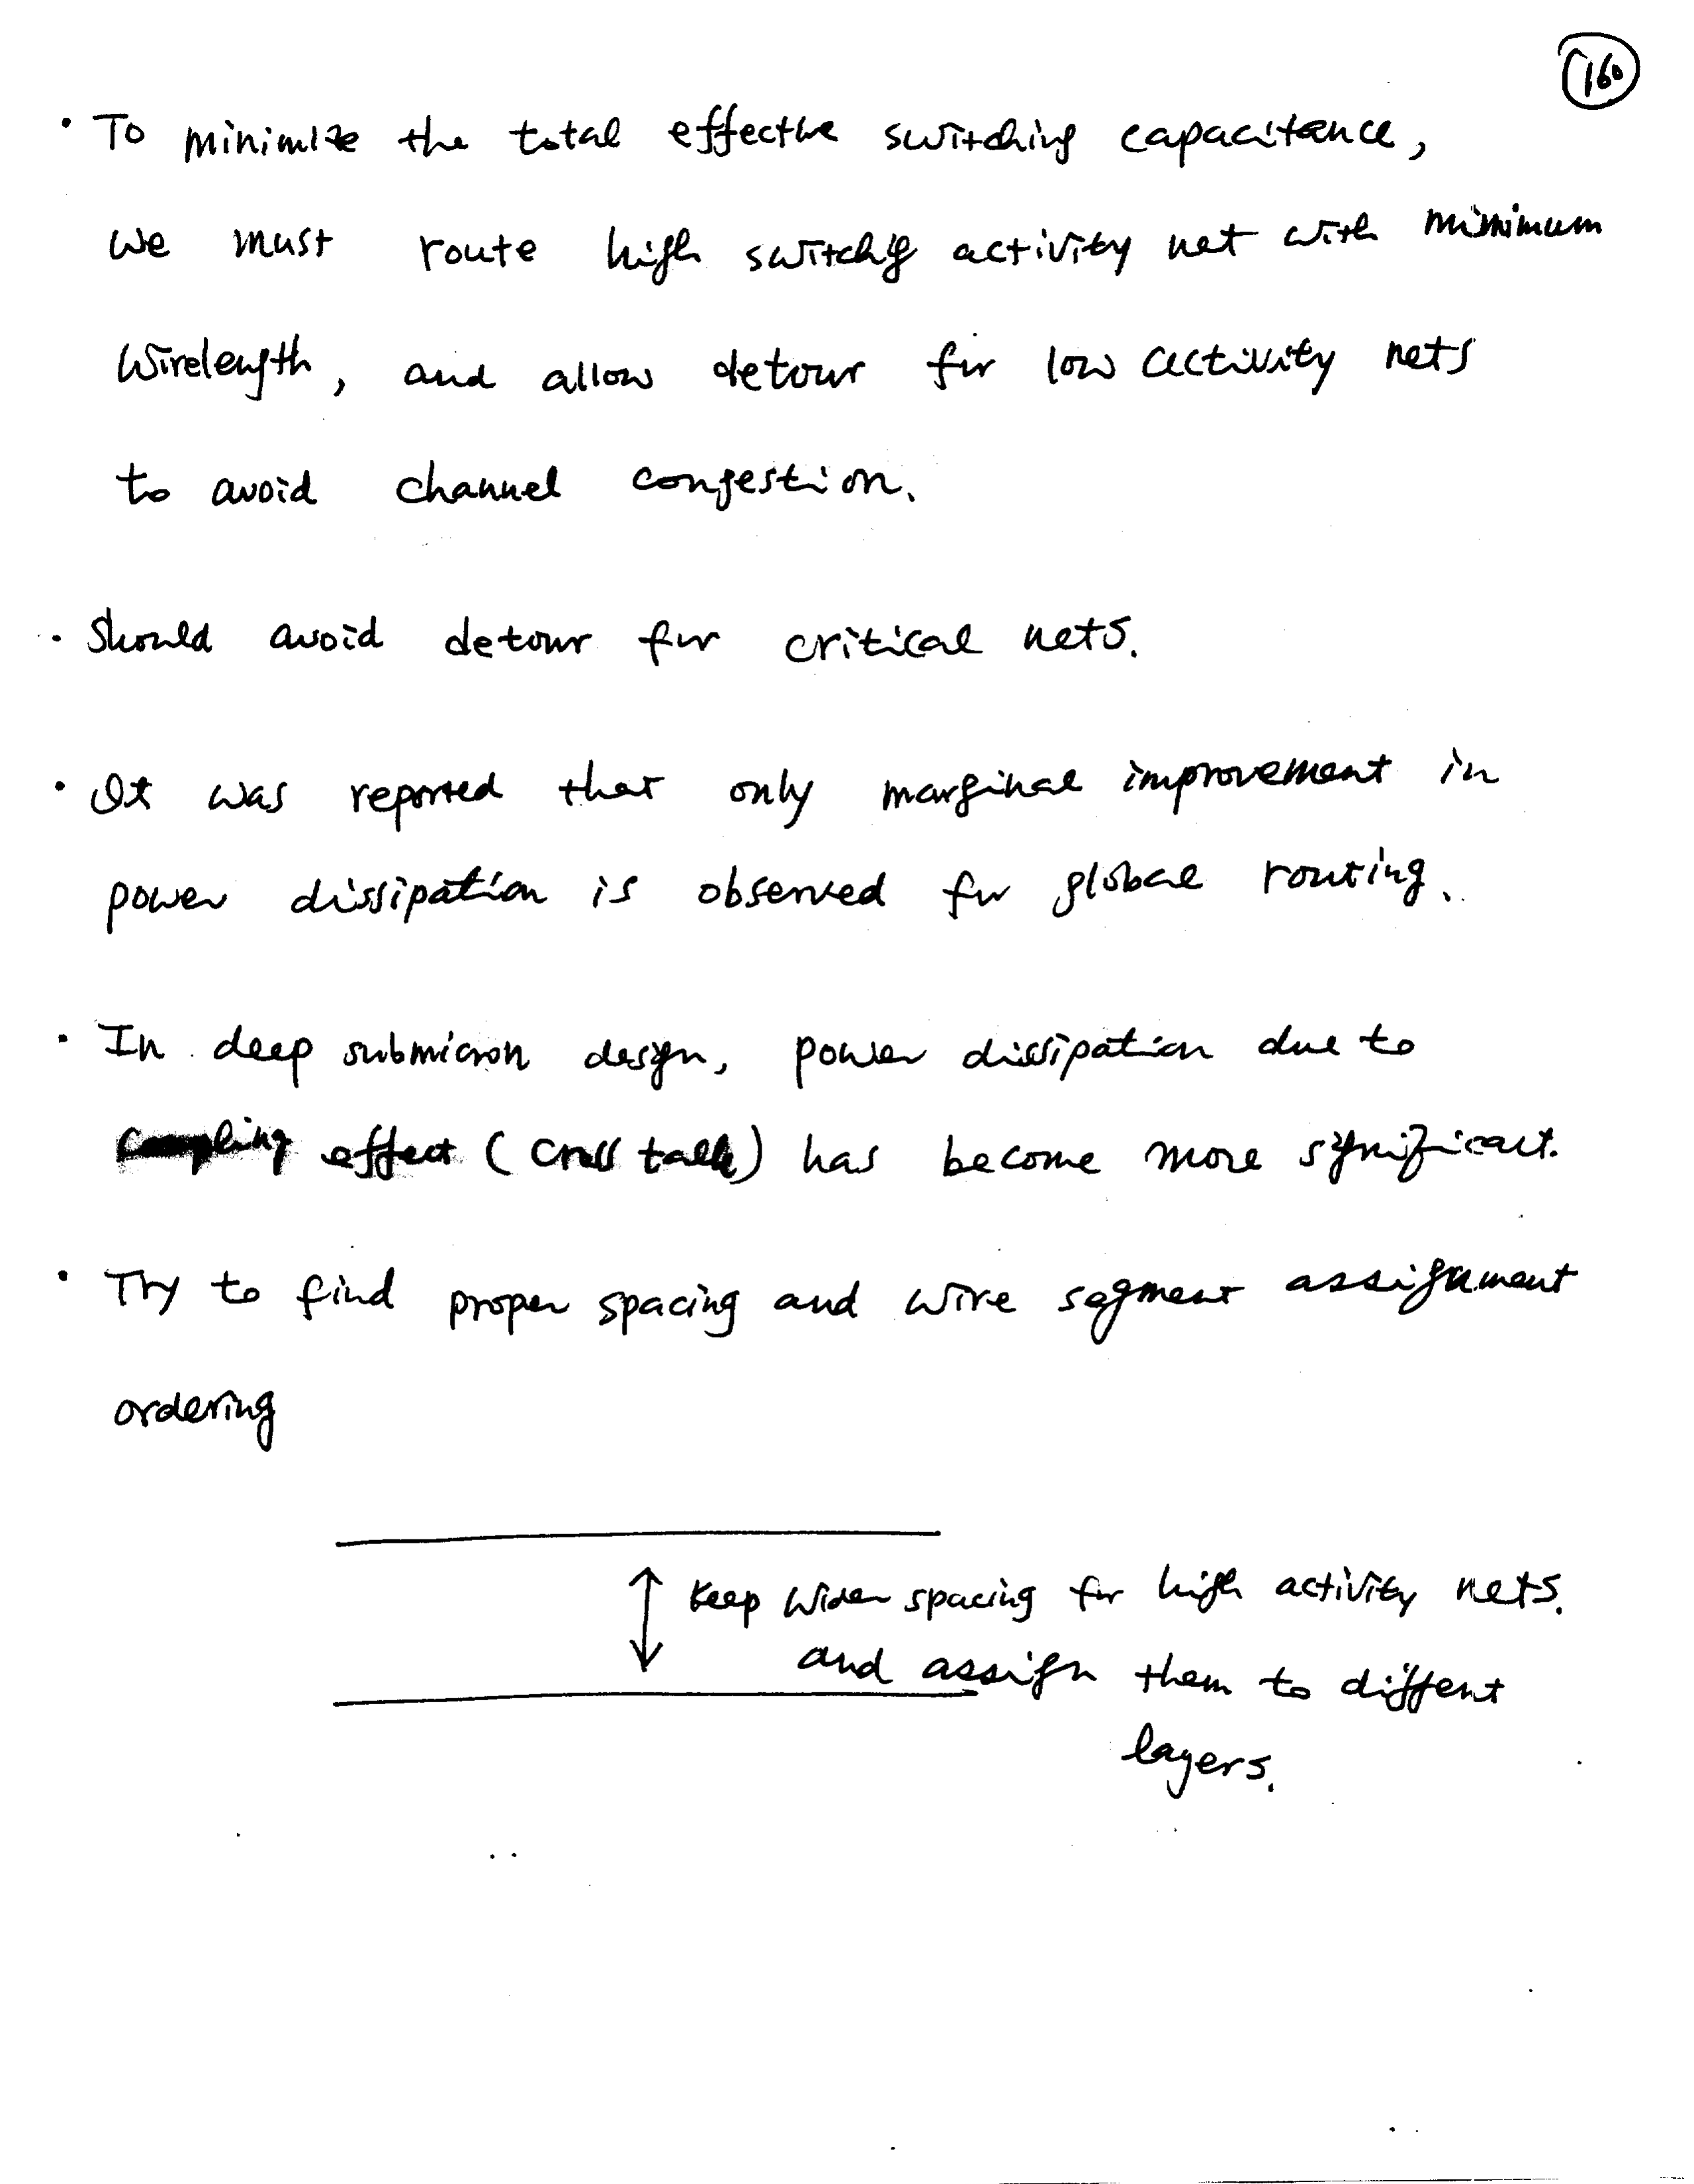 160
· To minimize the total effective switching capacitance,
we must route high switchig activity net with minimum
wirelength, and allow detour for low activity nets
to avoid channel congestion.
· Should avoid detour for critical nets.
· It was reported that only marginal improvement in
power dissipation is observed for global routing.
· In deep submicron design, power dissipation due to
coupling effect (cross talk) has become more significant.
· Try to find proper spacing and wire segment assignment
ordering
keep wider spacing for high activity nets.
and assign them to diffent
layers.